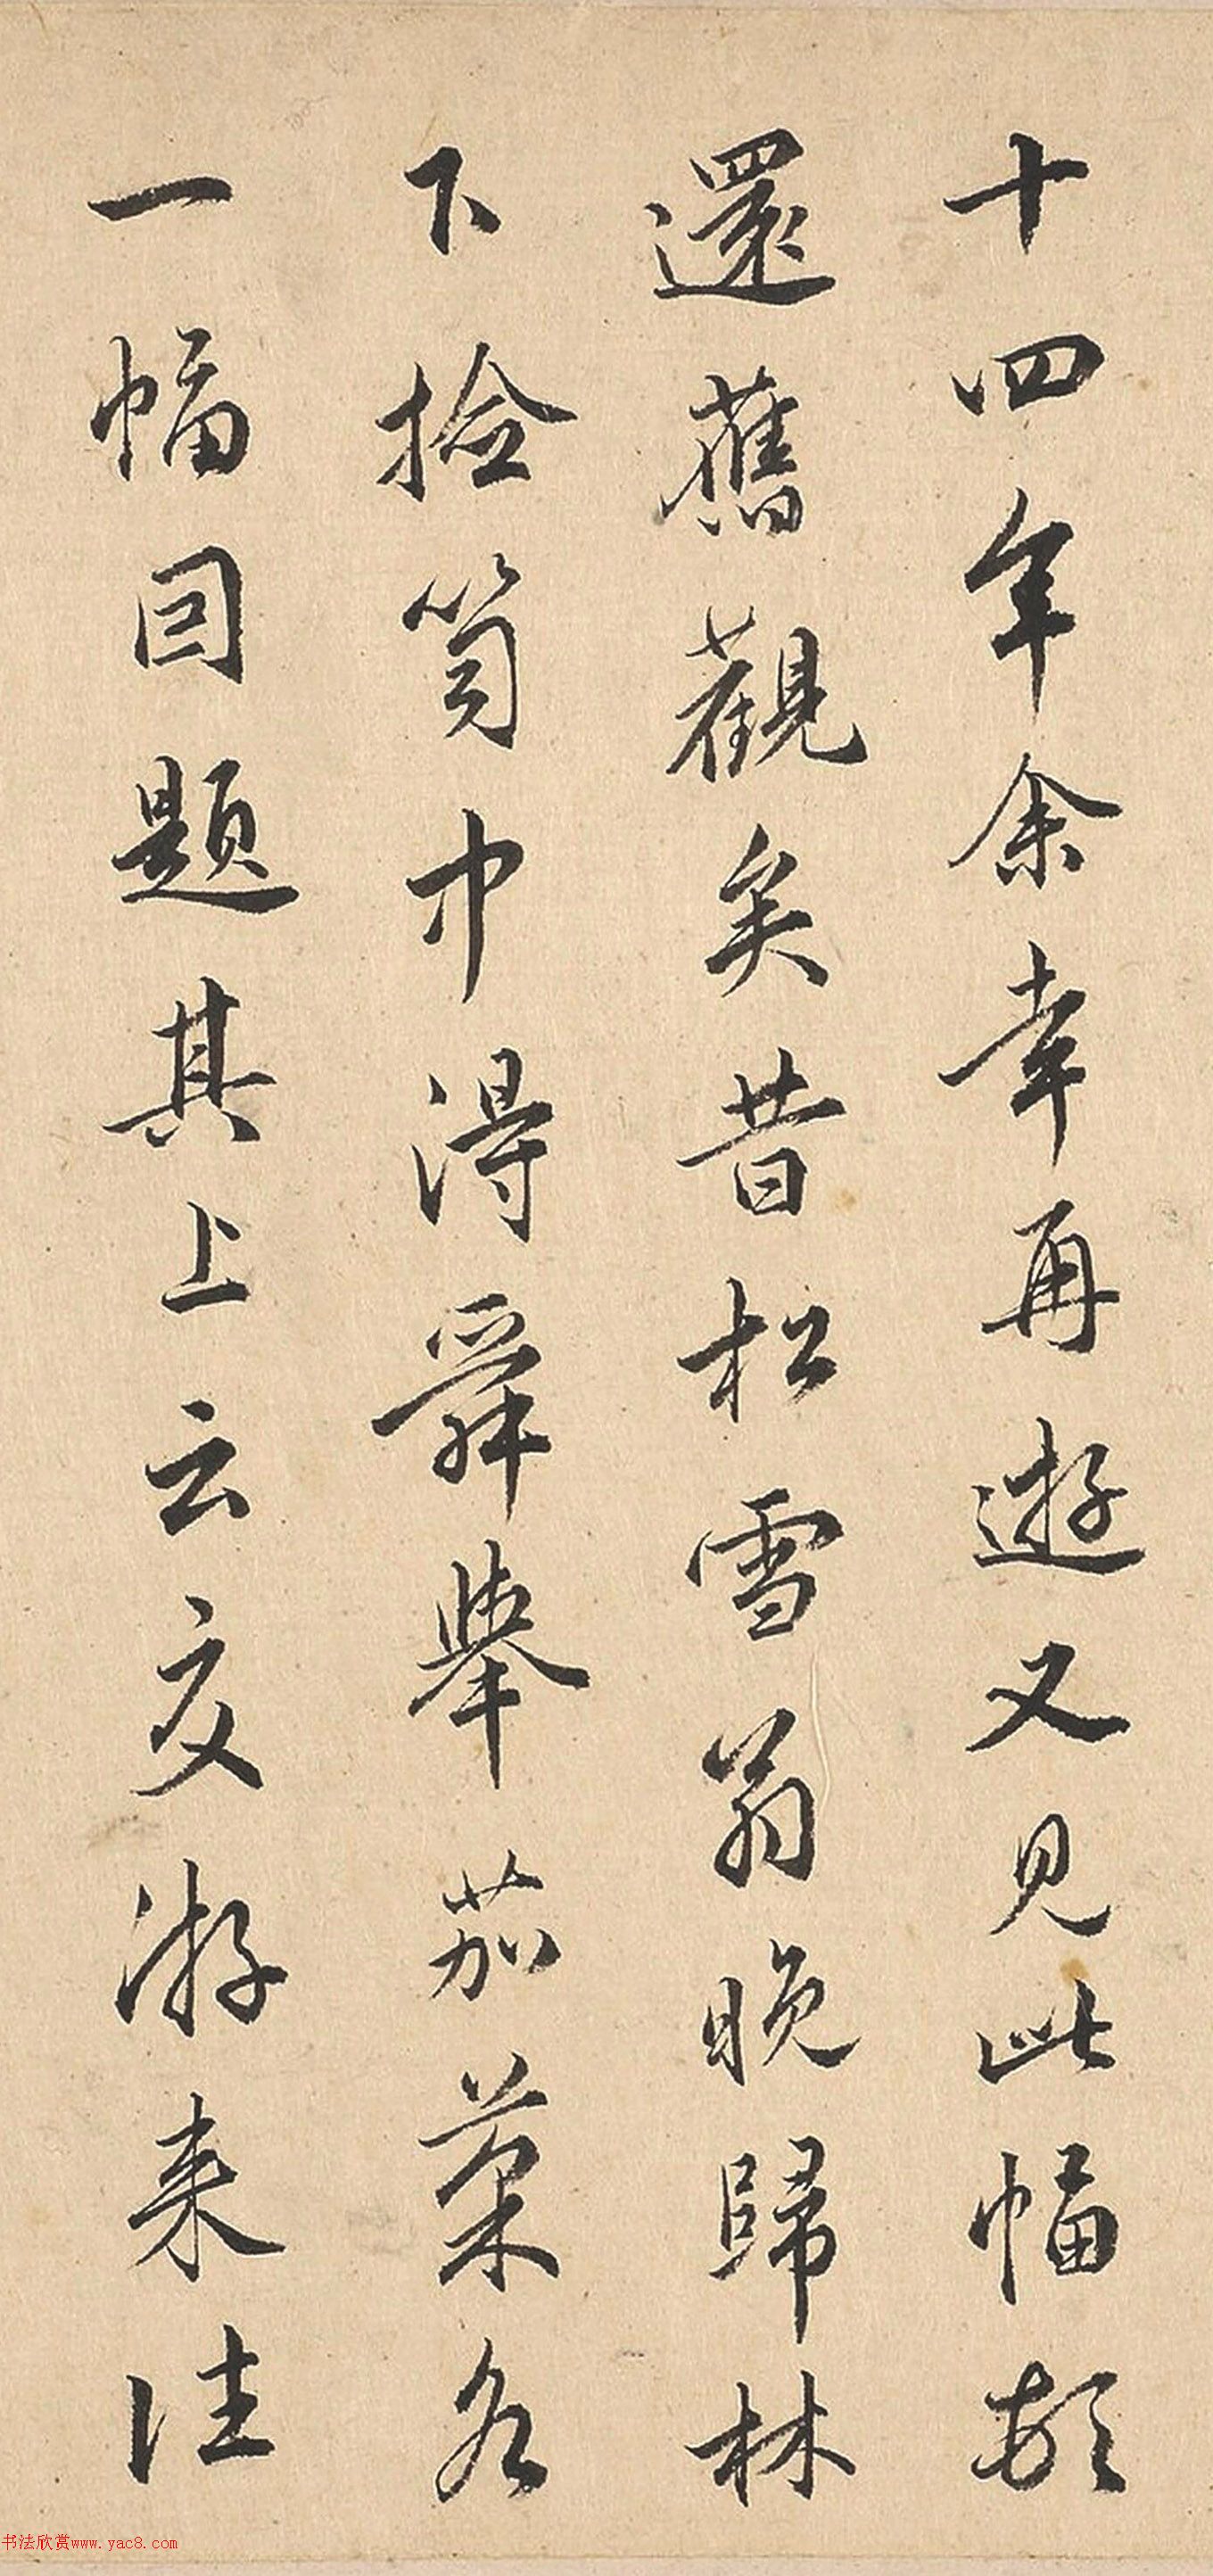 十四年余幸再遊又見此幅頓
還舊觀矣昔松雪翁晚歸林
下撿笥中得舜舉茄菜各
一幅因題其上云交游来往
书法欣赏www.yac8.com